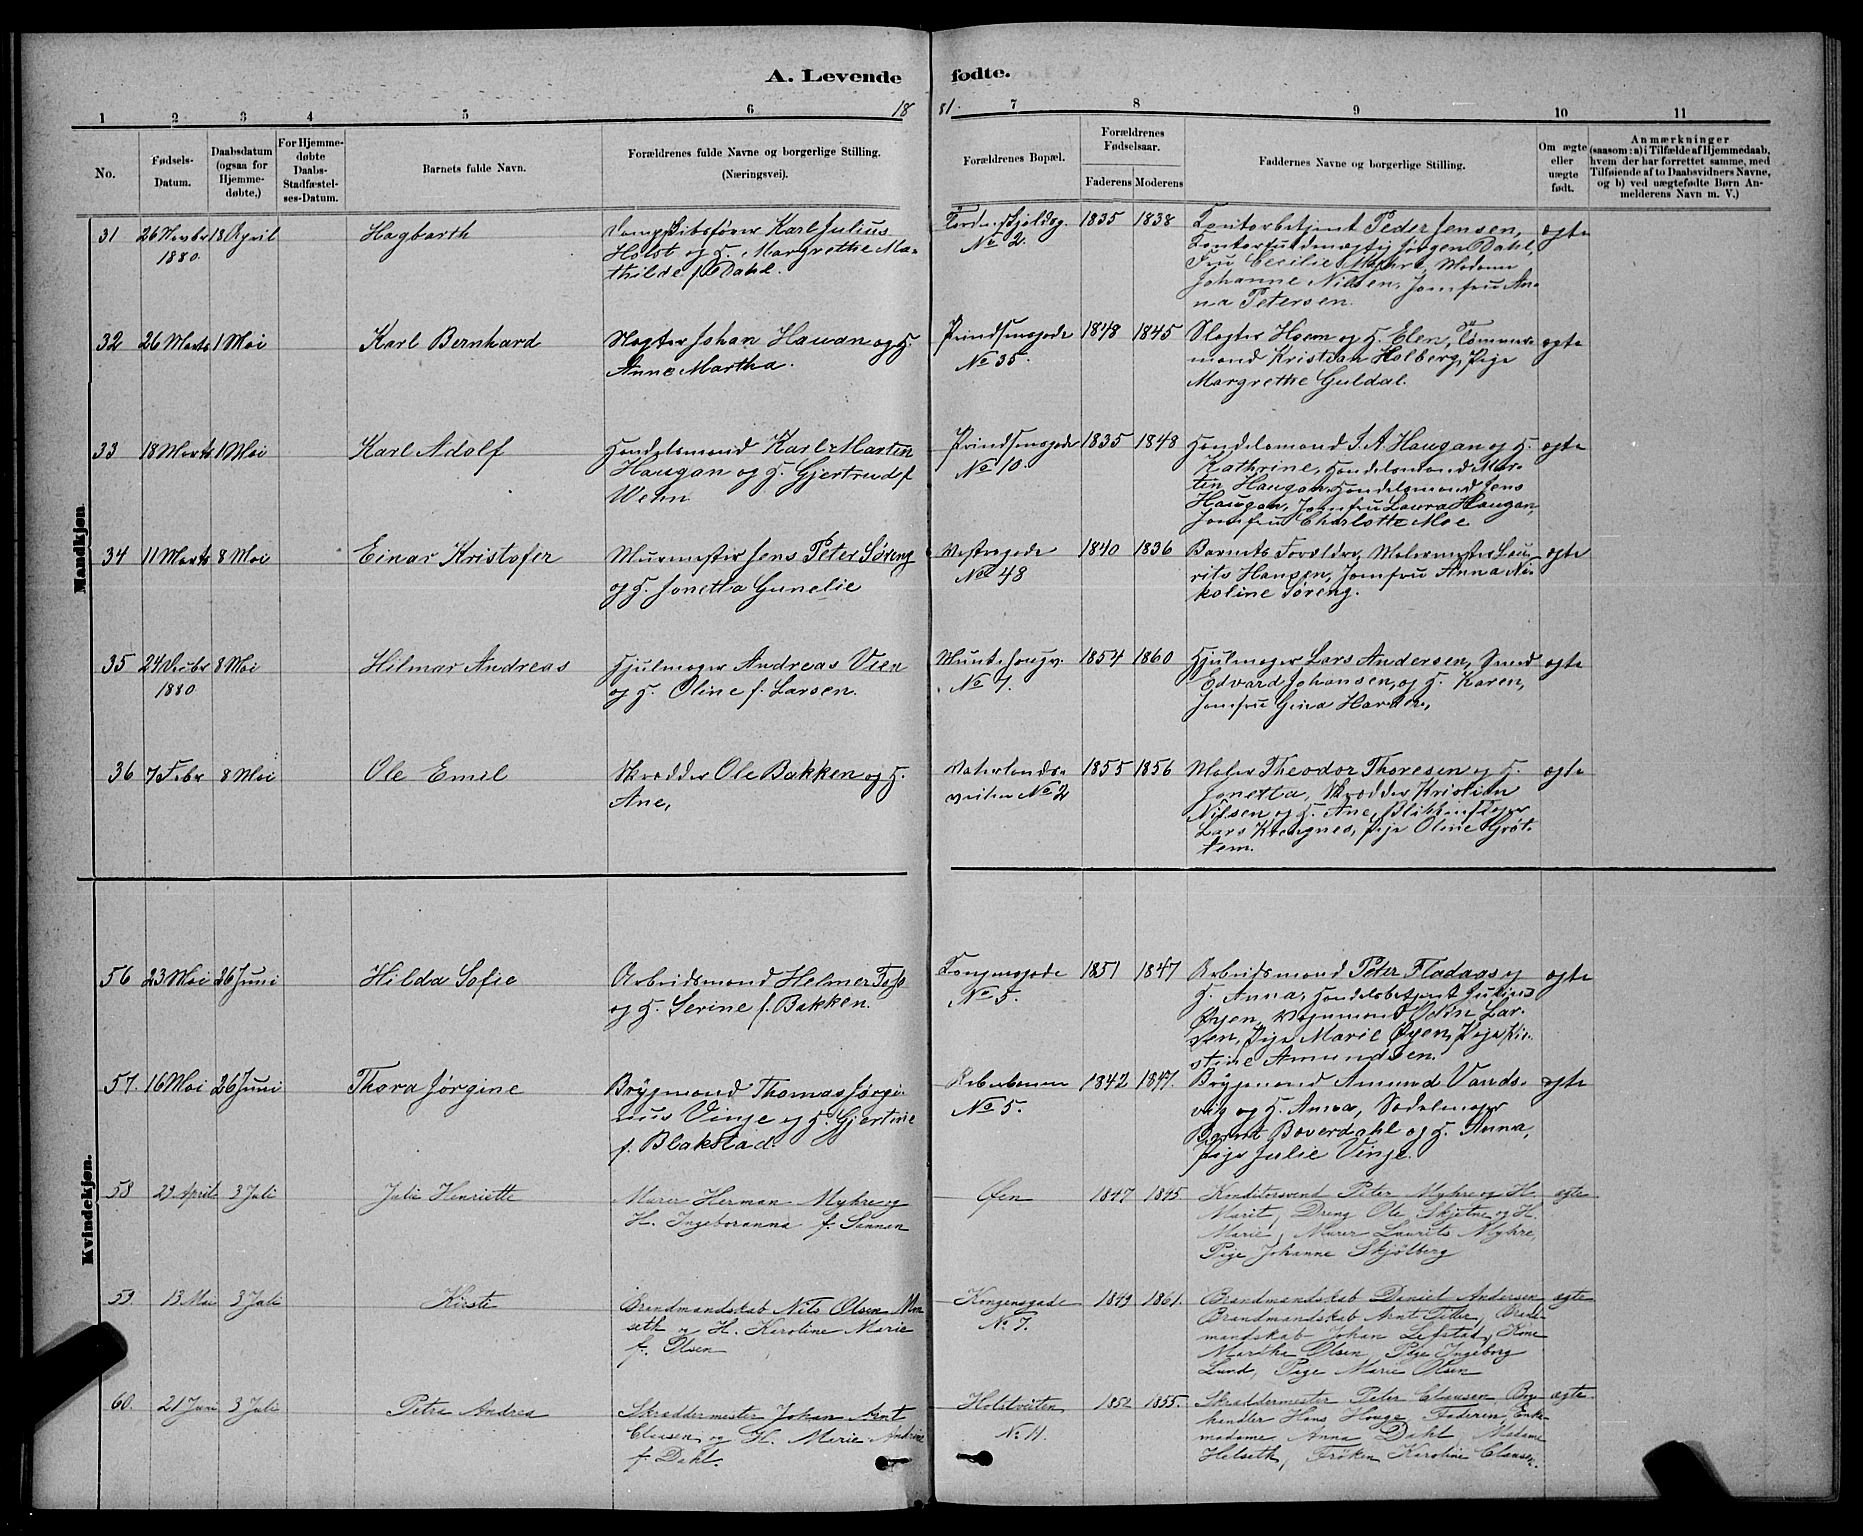 A. Levende fødte.
1 2 3 4 5 6 18 81. 7 8 9 10 11
No.
Fødsels-
Datum.
Daabsdatum
(ogsaa for
Hjemme-
døbte,)
For Hjemme-
døbte
Daabs-
Stadfæstel-
ses-Datum.
Barnets fulde Navn.
Forældrenes fulde Navne og borgerlige Stilling.
(Næringsvei).
Forældrenes Bopæl.
Forældrenes
Fødselsaar.
Faderens Moderens
Faddernes Navne og borgerlige Stilling.
Om ægte
eller
uægte
født.
Anmærkninger
(saasom: a) i Tilfælde af Hjemmedaab,
hvem der har forrettet samme, med
Tilføiende af to Daabsvidners Navne,
og b) ved uægtefødte Børn An-
melderens Navn m. V.)
Mandkjøn.
31 26 Novbr 18 April
1880
Hagbarth
Karl Julius
Holst og H. Margrethe Ma-
thilde f. Dahl.
No 2.
1835 1838
Kontorbetjent Peder Jensen,
Kontorfuldmægtig Jørgen Dahl,
Fru Cecilie Myhre, Madame
Johanne Nilsen, Jomfru An-
na Petersen.
ægte
32 26 Marts 1 Mai
Karl Bernhard
Slagter Johan Hauan og H.
Anne Martha.
Prindsensgade
No 35.
1848 1845
Slagter Hoem og H. Elen, Tømmer-
mand Kristian Holberg, Pige
Margrethe Guldal.
ægte
33 18 Marts 1 Mai
Karl Adolf
Handelsmand Karl Marten
Haugan og H. Gjertrud f.
Wehn
Prindsensgade
No 10.
1835 1848
Handelsmand I. A. Haugan og H.
Kathrine, Handelsmand Mar-
tin Haugan, Handelsmand Jens
Haugan, Jomfru Laura Haugan,
Jomfru Charlotte Moe
ægte
34 11 Marts 8 Mai
Einar Kristofer
Murmester Jens Peter Søreng
og H. Jonetta Gunelie
Vestregade
No 48
1840 1836
Barnets Forældre, Malermester Lau-
rits Hansen, Jomfru Anna Ni-
koline Søreng.
ægte
35 24 Decbr 8 Mai
1880
Hilmar Andreas
Hjulmager Andreas Vien
og H. Oline f. Larsen.
No 7.
1854 1860
Hjulmager Lars Andersen, Smed
Edvard Johansen, og H. Karen,
Jomfru Gina
ægte
36 7 Febr 8 Mai
Ole Emil
Skrædder Ole Bakken og H.
Ane,
Vaterlands-
veiten No 2
1855 1856
Maler Theodor Thoresen og H.
Jonetta, Skrædder Kristian
Nilsen og H. Ane, Blikkenslager
Lars Pige Oline Grøt-
tem.
ægte
Kvindekjøn.
56 23 Mai 26 Juni
Hilda Sofie
Arbeidsmand Helmer
og H. Serine f. Bakken.
Kongensgade
No 5.
1851 1847
Arbeidsmand Peter Fladaas og
H. Anna, Handelsbetjent Julius
Øyen, Vognmand Odin Lar-
sen, Pige Marie Øyen, Pige Kri-
stine Amundsen.
ægte
57. 16 Mai 26 Juni
Thora Jørgine
Brygmand Thomas Jørgi-
nus Vinje og H. Gjertine
f. Blakstad.
Reberbanen
No 5.
1842 1847.
Brygmand Amund Vands-
vig og H. Anna, Sadelmager
Bernt Boverdahl og H. Anna,
Pige Julie Vinje.
ægte
58 29 April 3 Juli
Julie Henriette
Murer Herman Myhre og
H. Ingeboranna f. Sannan
Øen
1847 1845
Konditorsvend Peter Myhre og H.
Marit, Dreng Ole Skjetne og H.
Marie, Murer Laurits Myhre,
Pige Johanne Skjølberg
ægte
59. 13 Mai 3 Juli
Kirsti
Brandmandskab Nils Olsen
og H. Karoline Marie
f. Olsen
Kongensgade
No 7.
1849 1861.
Brandmandskab Daniel Andersen
Brandmandskab Arnt Tiller, Brand-
mandskab Johan Lefstad, Kone
Martha Olsen, Pige Ingeborg
Lund, Pige Marie Olsen
ægte
60. 21 Juni 3 Juli
Petra Andrea
Skræddermester Johan Arnt
Clausen og H. Marie Andrine
f. Dahl.
Holstveiten
No 11.
1852 1855.
Skræddermester Peter Clausen, Bog-
handler Hans Houge, Faderen, Enke-
madame Anna Dahl, Madame
Helseth, Frøken Karoline Clausen.
ægte